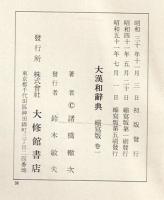 昭和三十年十一月三日 初版發行
昭和四十一年五月二十日 縮寫版第一刷發行
昭和五十一年七月一日 縮寫版第五刷發行
大漢和辭典 縮寫版 卷一
著者 © 諸橋轍次
發行者 鈴木敏夫
發行所 株式會社 大修館書店
東京都千代田區神田錦町三丁目二四番地